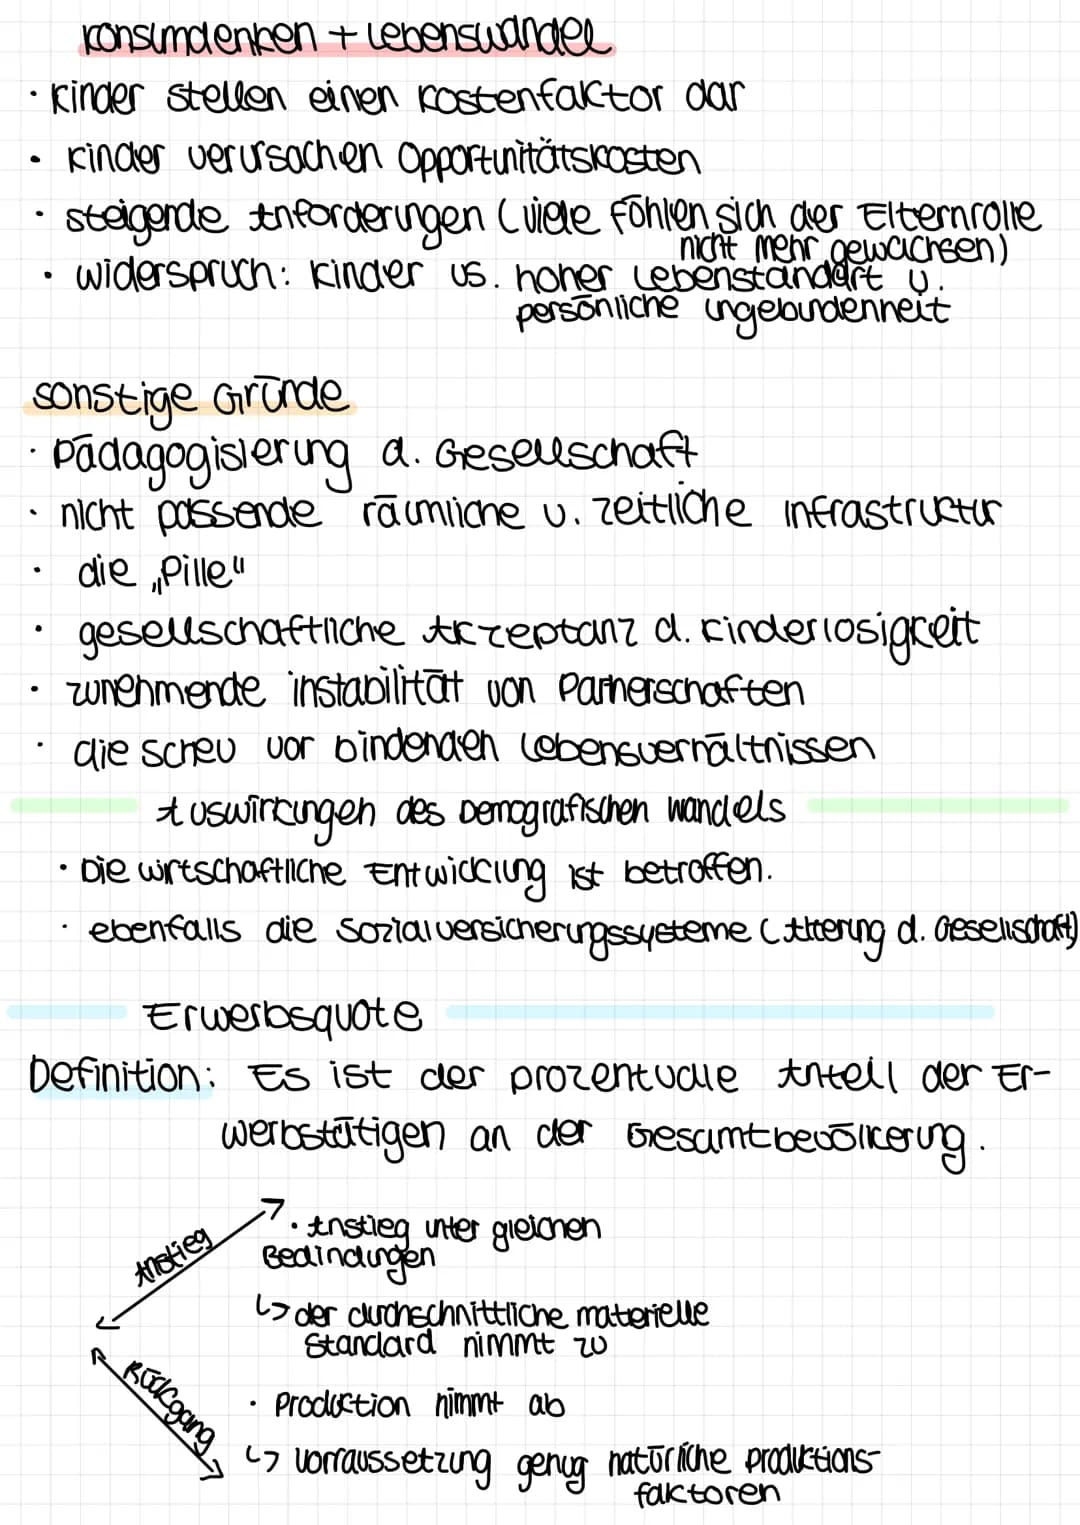 Konsumdenken + Lebenswandel
· Kinder stellen einen Kostenfaktor dar
· Kinder verursachen Opportunitätskosten
· steigende Anforderungen (viele fühlen sich der Elternrolle
nicht mehr gewachsen)
· widerspruch: Kinder vs. hoher Lebenstandart u.
persönliche ungebundenheit
sonstige Gründe
· Pädagogisierung d. Gesellschaft
· nicht passende räumliche u. zeitliche Infrastruktur
· die „Pille"
· gesellschaftliche Akzeptanz d. Kinderlosigkeit
· zunehmende instabilität von Partnerschaften
· die scheu vor bindenden Lebensverhältnissen
Auswirkungen des Demografischen wandels
· Die wirtschaftliche Entwicklung ist betroffen.
· ebenfalls die Sozialversicherungssysteme (Alterung d. Gesellschaft)
Erwerbsquote
Definition: Es ist der prozentuale Anteil der Er-
werbstätigen an der Gesamtbevölkerung.
Anstieg
· Anstieg unter gleichen
Bedindungen
↳ der durchschnittliche materielle
Standard nimmt zu
Rückgang
· Production nimmt ab
↳ Vorraussetzung genug natürliche produktions-
faktoren